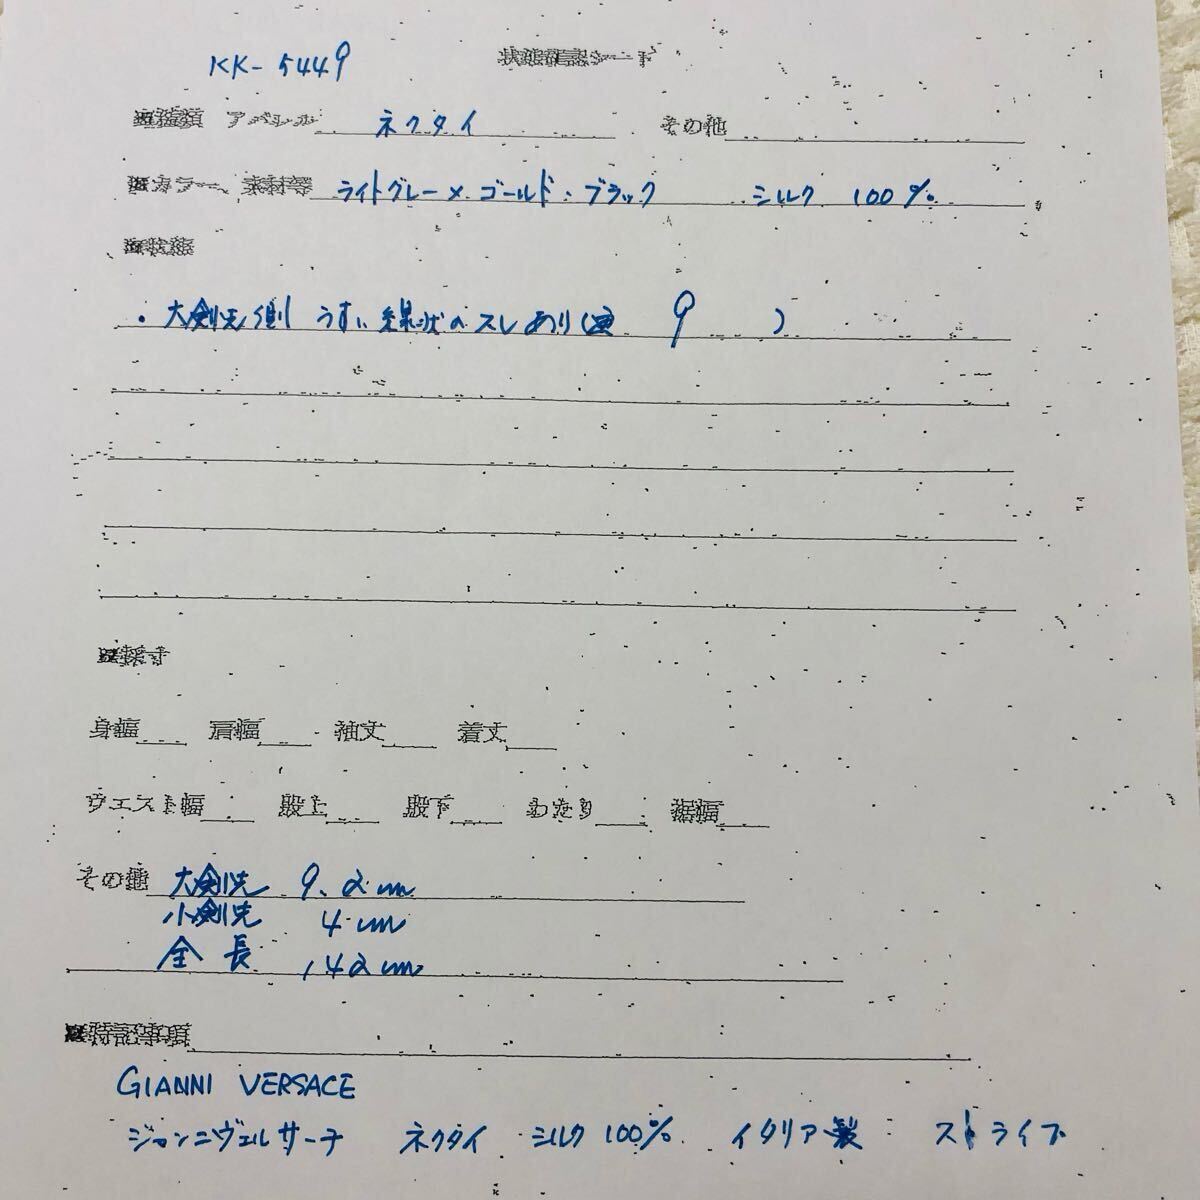 KK-5449 状態確認シート
■種類 アパレル ネクタイ その他
■カラー、素材等 ライトグレー×ゴールド・ブラック シルク 100%
■状態
・大剣先側 うすい線状のスレあり(写 9 )
■採寸
身幅 肩幅 袖丈 着丈
ウエスト幅 股上 股下 わたり 裾幅
その他 大剣先 9.2cm
小剣先 4cm
全長 142cm
■特記事項
GIANNI VERSACE
ジャンニヴェルサーチ ネクタイ シルク100% イタリア製 ストライプ